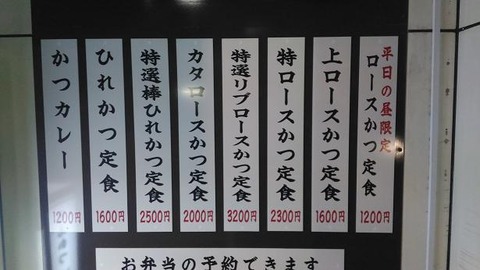 平日の昼限定
ロースかつ定食
1200円
上ロースかつ定食
1600円
特ロースかつ定食
2300円
特選リブロースかつ定食
3200円
カタロースかつ定食
2000円
特選棒ひれかつ定食
2500円
ひれかつ定食
1600円
かつカレー
1200円
お弁当の予約できます